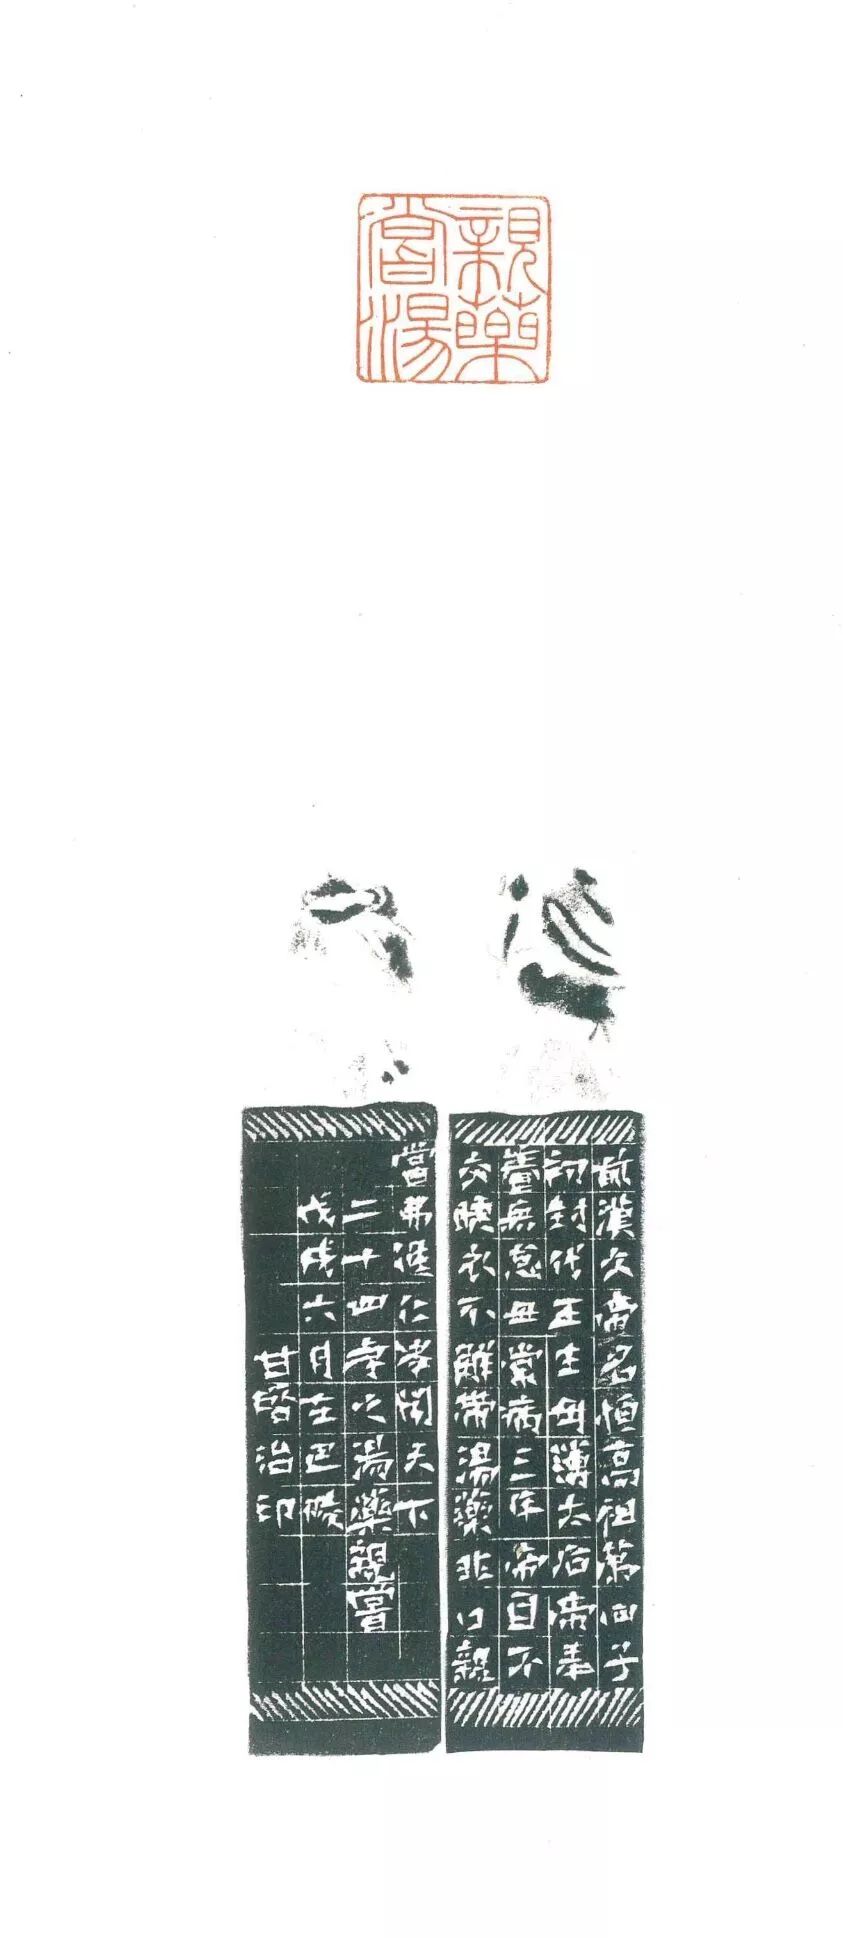 親藥
嘗湯
前漢文帝名恒高祖第四子
初封代王生母薄太后帝奉
養無怠母常病三年帝目不
交睫衣不解帶湯藥非口親
嘗弗進仁孝聞天下
二十四孝之湯藥親嘗
戊戌六月在巴陵
甘治印